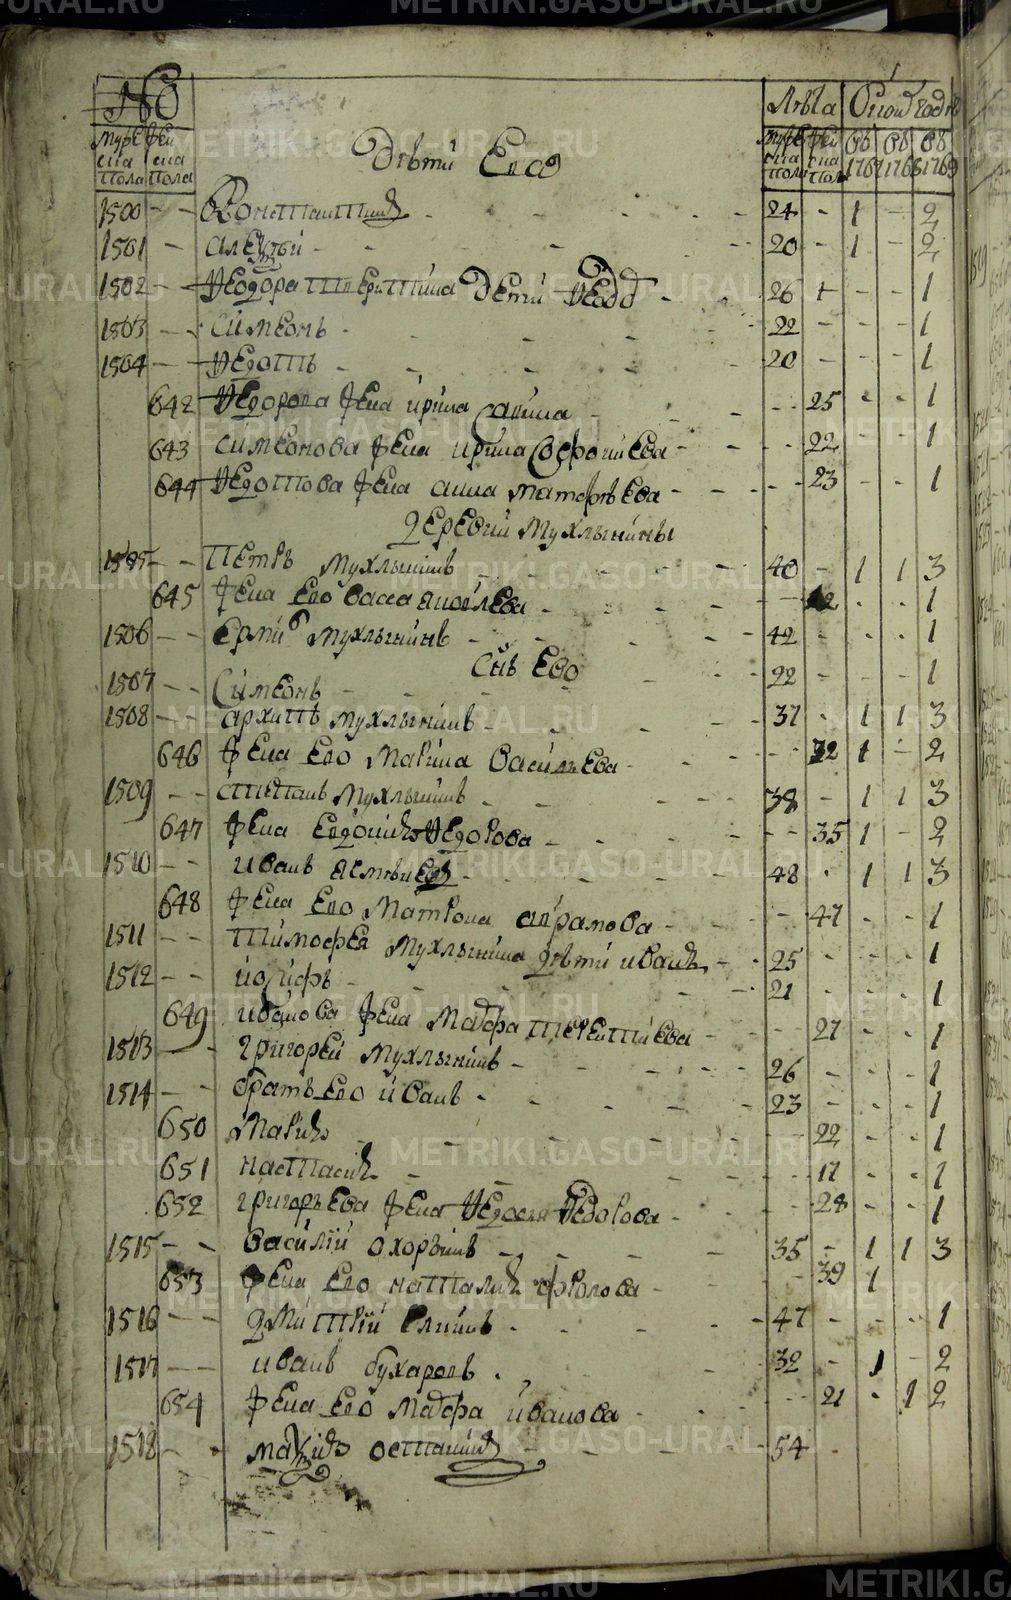 № Лѣта С коих годовъ
Мужеска пола Женска пола Дѣти Ево Мужеска пола Женска пола Въ 1767 Въ 1768 Въ 1769
1500 - - Константинъ - 24 - 1 - 2
1501 - Алексей - 20 - 1 - 2
1502 - Ѳеодора Терентиина Дети Ѳеод - 26 - - - 1
1503 - Симеонъ - 22 - - - 1
1504 - Ѳедотъ - 20 - - - 1
642 Ѳедорова жена Ирина - - 25 - - 1
643 Симеонова жена Ирина Софониева - - 22 - - 1
644 Ѳедотова жена Анна Матфѣева - - 23 - - 1
Деревни Мухлынины
1505 - - Петръ Мухлынинъ - 40 - 1 1 3
645 Жена Ево Васса Яковлева - - - - 1
1506 - - Ермил Мухлынинъ - 42 - - - 1
Снъ Ево
1507 - - Симеонъ - 22 - - - 1
1508 - - Архипъ Мухлынинъ - 37 - 1 1 3
646 Жена Ево Марина Васильева - - 32 1 - 2
1509 - - Степанъ Мухлынинъ - 38 - 1 1 3
647 Жена Евдокиѧ Ѳедорова - - 35 1 - 2
1510 - - Иванъ - 48 - 1 1 3
648 Жена Ево Матрона Аврамова - - 47 - - 1
1511 - - Тимофея Мухлынина дѣти Иванъ - 25 - - - 1
1512 - - Иосифъ - 21 - - - 1
649 Иванова жена Мавра Терентиева - - 27 - - 1
1513 - Григорей Мухлынинъ - 26 - - - 1
1514 - - Братъ Ево Иванъ - 23 - - - 1
650 Мариѧ - - 22 - - 1
651 Настасиѧ - - 17 - - 1
652 Григорьева жена Ѳедосья Ѳедорова - - 28 - - 1
1515 - - Василий Охорзинъ - 35 - 1 1 3
653 Жена Ево Наталиѧ Фролова - - 39 1
1516 - - Дмитрий Елинъ - 47 - - - 1
1517 - - Иванъ Бухаровъ - 32 - 1 - 2
654 Жена Ево Мавра Иванова - - 21 - 1 2
1518 - - Максимъ Останинъ - 54 -
METRIKI.GASO-URAL.RU